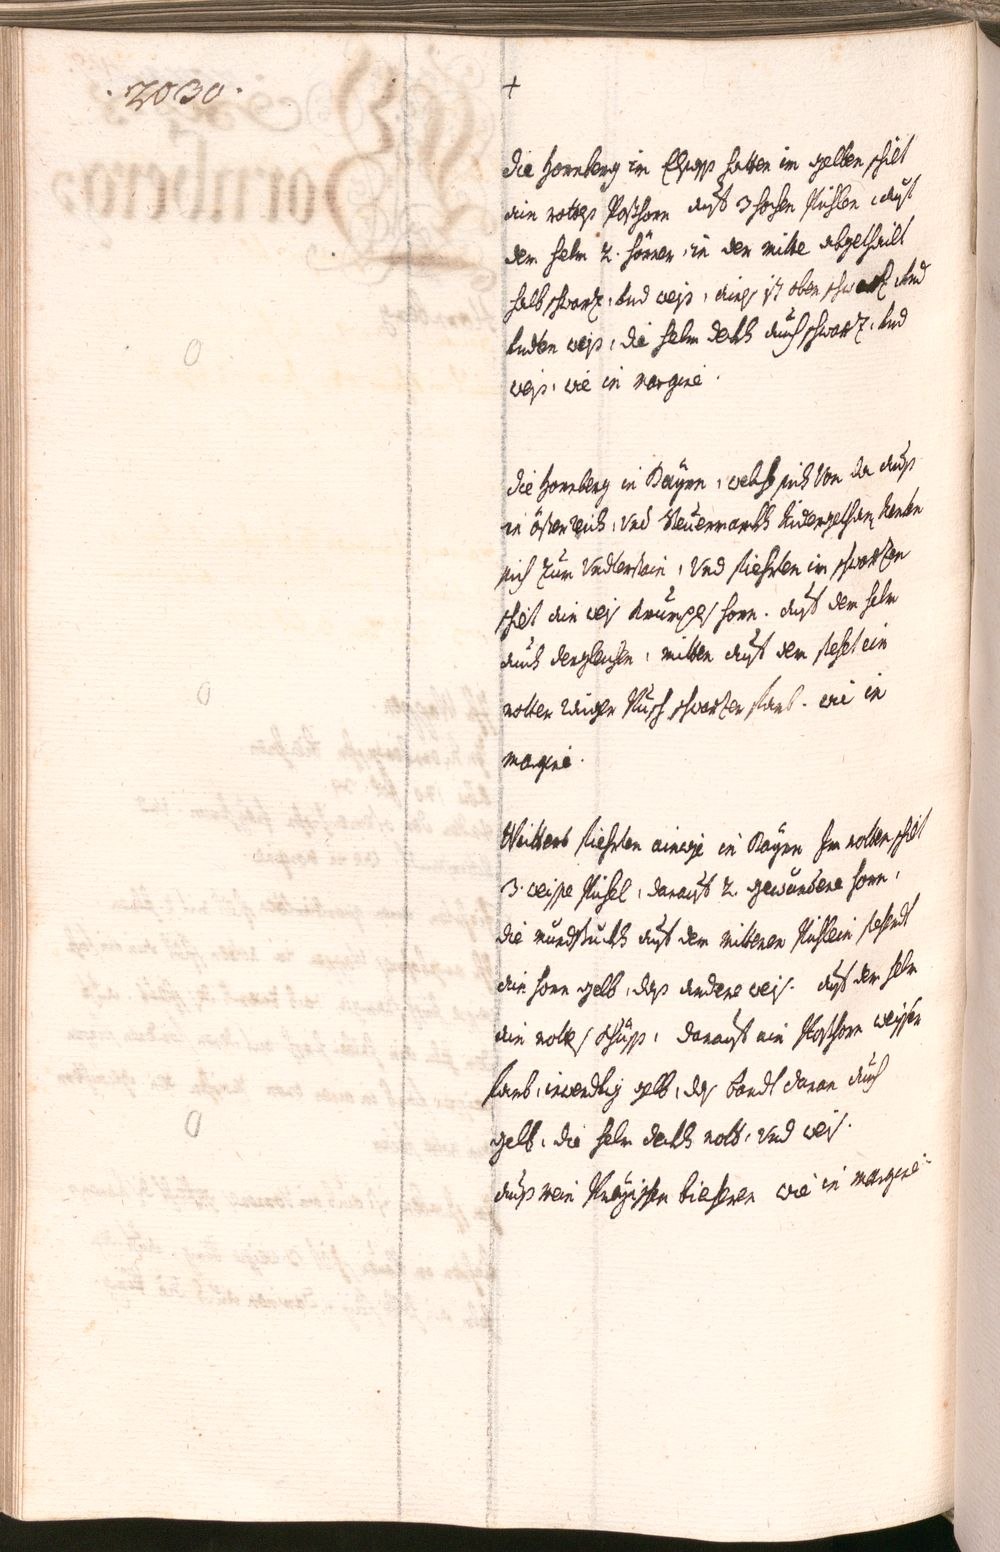 . 2030 .
+
die Hornberg im Elsass hatten im gelben schilt
ain rottes Posthorn auf 3 hochen Pichlen, auf
dem helm 2. hörner, in der mitte abgethailt
halb schwartz, und weiss, aines ist oben schwartz, und
undten weiss, die helm deckh auch schwartz, und
weiss, wie in margine.
die Hornberg in Bayrn, welche sich von da auss
in Österreich, und Steuermarckh nidergethan, nenten
sich zum Undterstain, und fiehrten im schwartzen
schilt ain weis krumpes horn. auf dem helm
auch dergleichen, mitten auf dem steht ein
rotter Pusch schwartzer farb. wie in
margine.
Weitters fiehrten ainige in Bayrn Im rotten schilt
3. weisse Pichel, darauf 2. gewundene horn,
die mundstuckh auf dem mitteren Pichlein stehendt
ain horn gelb, das andere weis. auf dem helm
ain rottes, darauf ein Posthorn weisser
farb, inwendtig gelb, das bandt daran auch
gelb, die helm deckh rott, und weis.
auss mein wie in margine.
0
0
0